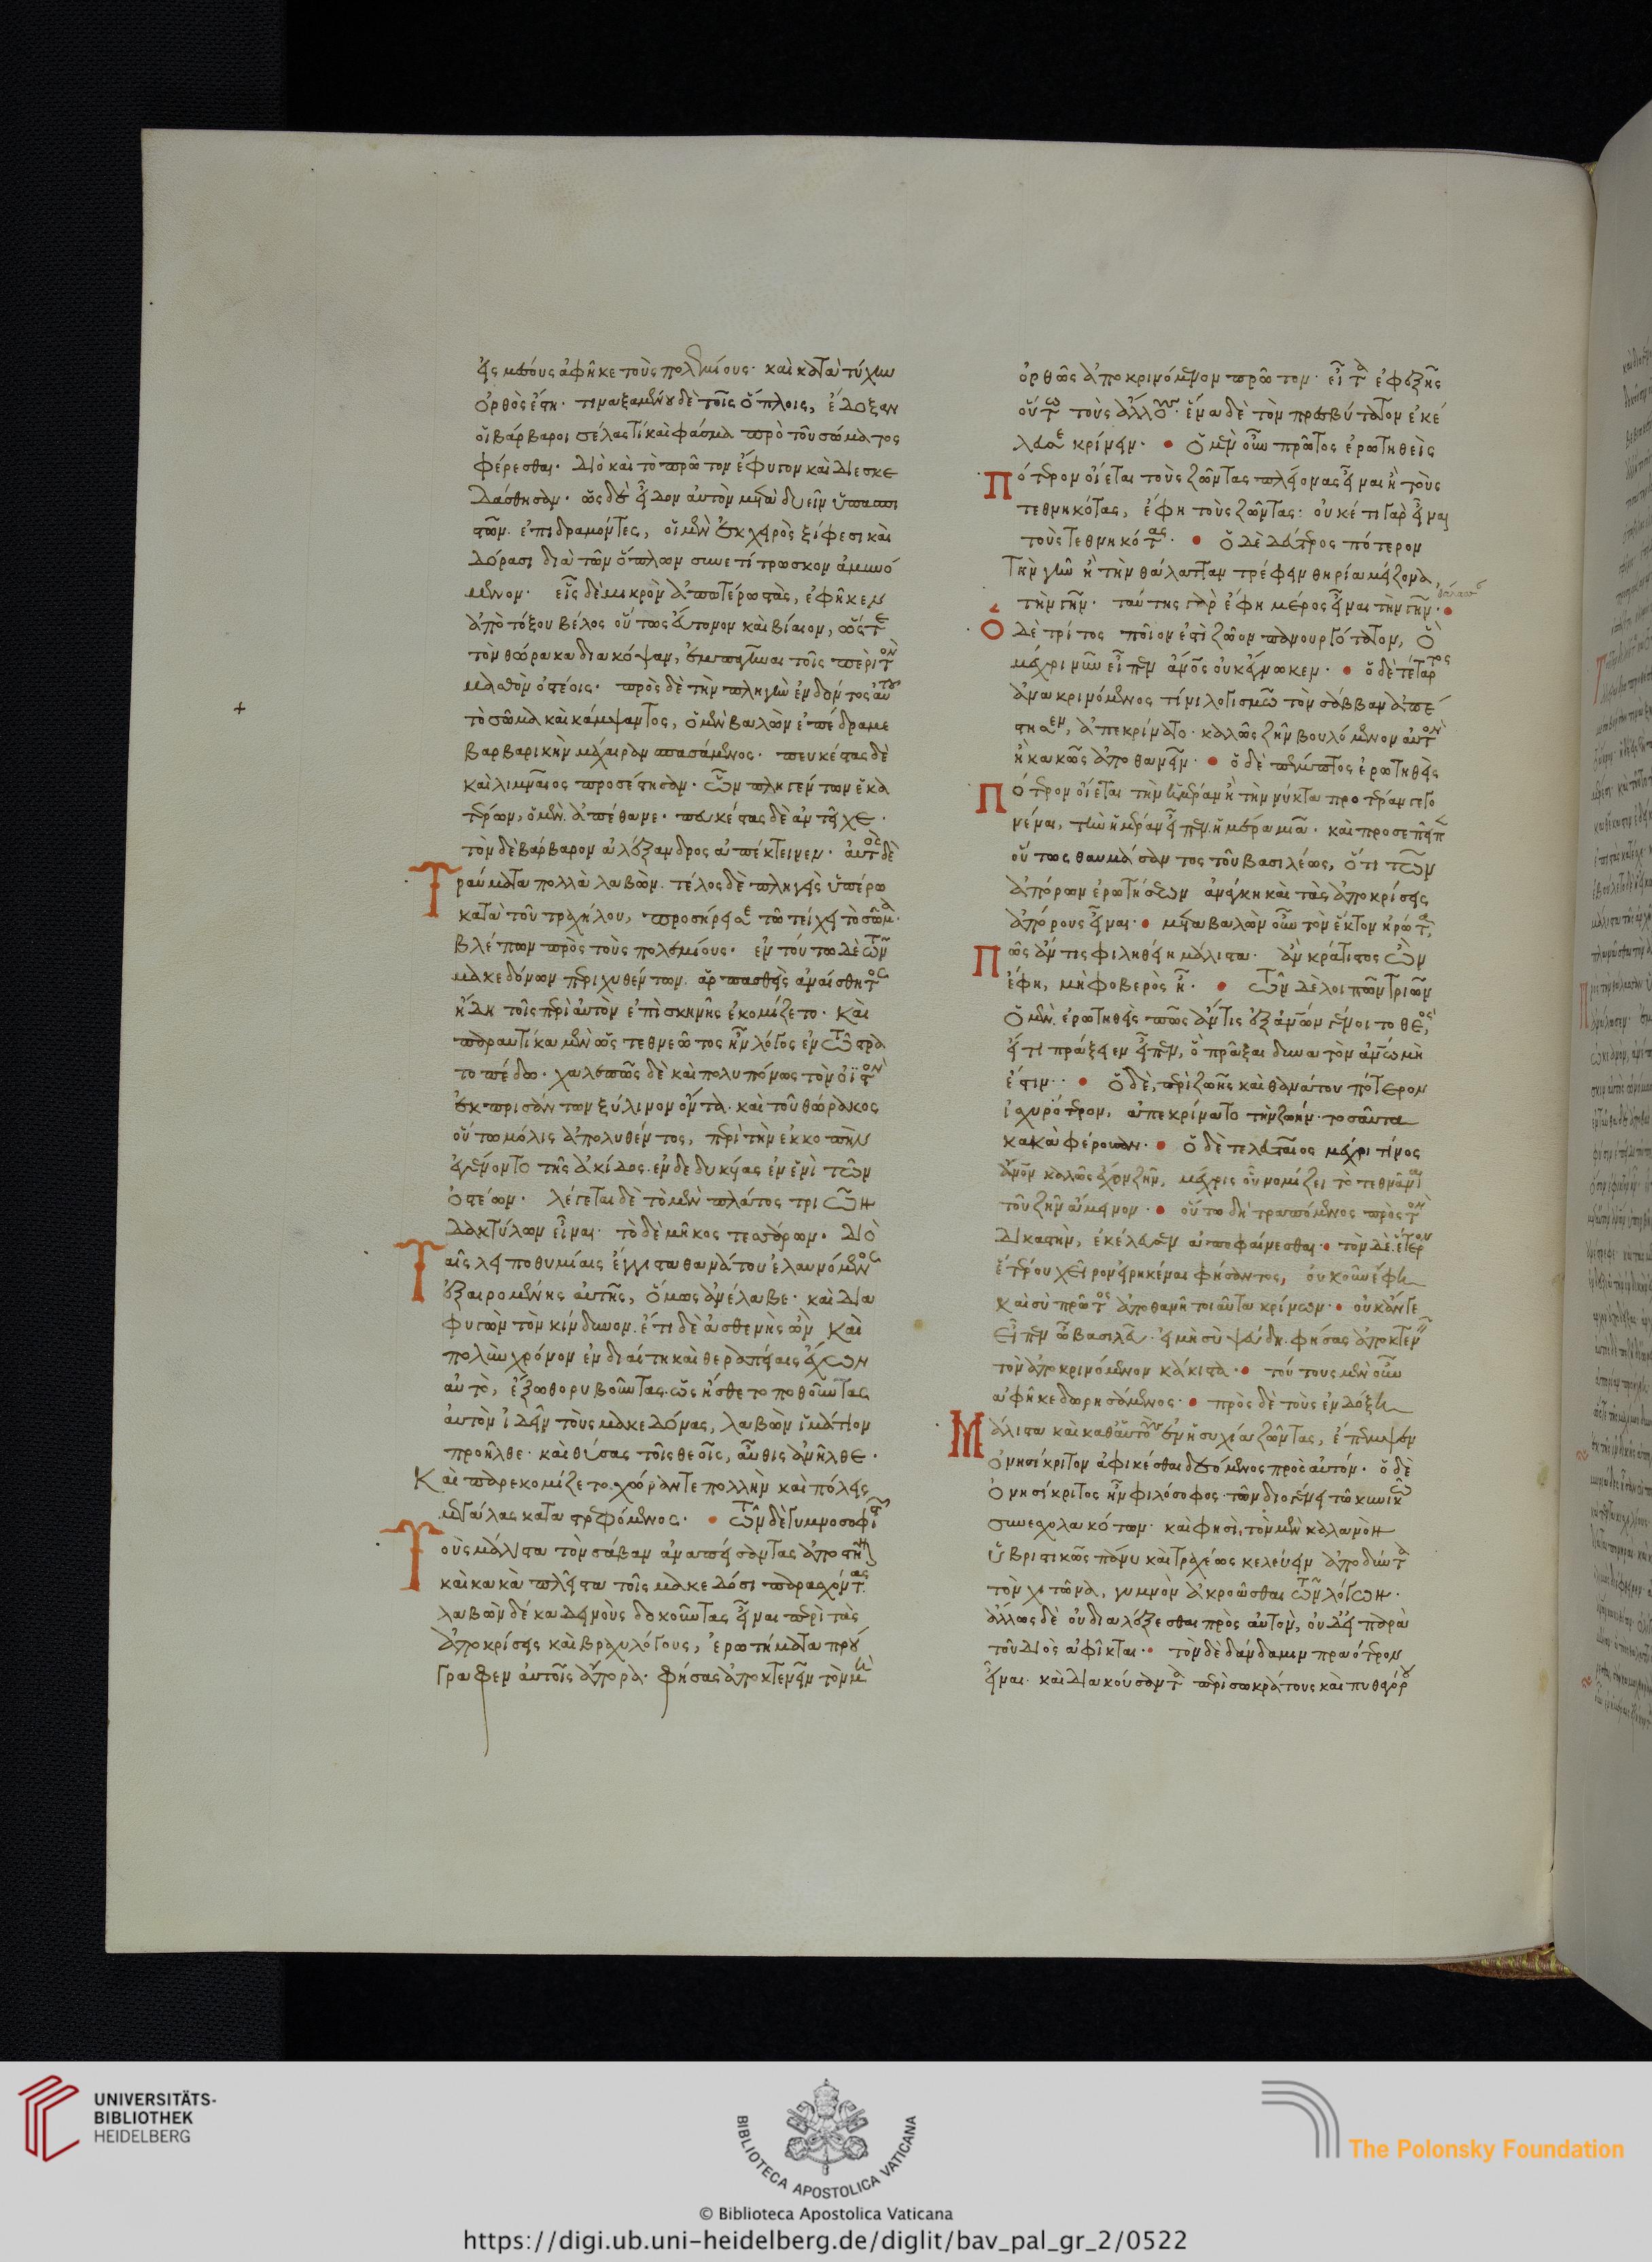 εἰς μέσους ἀφῆκε τοὺς πολεμίους· καὶ κατὰ τύχην
ὀρθὸς ἔστη· τιναξαμένου δὲ τοῖς ὅπλοις, ἔδοξαν
οἱ βάρβαροι σέλας τι καὶ φάσμα πρὸ τοῦ σώματος
φέρεσθαι· διὸ καὶ τὸ πρῶτον ἔφυγον καὶ διεσκε
δάσθησαν· ὡς δὲ εἶδον αὐτὸν μετὰ δυεῖν ὑπασπι
στῶν· ἐπιδραμόντες, οἱ μὲν ἐκ χειρὸς ξίφεσι καὶ
δόρασι διὰ τῶν ὅπλων συνετίτρωσκον ἀμυνό
μενον· εἷς δὲ μικρὸν ἀπωτέρω στὰς, ἐφῆκεν
ἀπὸ τόξου βέλος οὕτως εὔτονον καὶ βίαιον, ὥστε
τὸν θώρακα διακόψαν, ἐμπαγῆναι τοῖς περὶ τὸν
μασθὸν ὀστέοις· πρὸς δὲ τὴν πληγὴν ἐνδόντος αὐτοῦ
τὸ σῶμα καὶ κάμψαντος, ὁ μὲν βαλὼν ἐπέδραμε
βαρβαρικὴν μάχαιραν σπασάμενος· πευκέστας δὲ
καὶ λιμναῖος προσέστησαν· ὧν πληγέντων ἑκα
τέρων, ὁ μὲν ἀπέθανε· πευκέστας δὲ ἀντεῖχε·
τὸν δὲ βάρβαρον ἀλέξανδρος ἀπέκτεινεν· αὐτὸς δὲ
Τραύματα πολλὰ λαβὼν· τέλος δὲ πληγεὶς ὑπέρω
κατὰ τοῦ τραχήλου, προσήρεισε τῶ τείχει τὸ σῶμα·
βλέπων πρὸς τοὺς πολεμίους· ἐν τούτω δὲ τῶν
μακεδόνων περιχυθέντων· ἁρπασθεὶς ἀναίσθητος
ἤδη τοῖς περὶ αὐτὸν ἐπὶ σκηνῆς ἐκομίζετο· καὶ
παραυτίκα μὲν ὡς τεθνεῶτος ἦν λόγος ἐν τῶ στρα
τοπέδω· χαλεπῶς δὲ καὶ πολυπόνως τὸν ὀϊστὸν
ἐκπρισάντων ξύλινον ὄντα· καὶ τοῦ θώρακος
οὕτω μόλις ἀπολυθέντος, περὶ τὴν ἐκκοπὴν
ἐγένοντο τῆς ἀκίδος· ἐνδεδυκυίας ἐν ἑνὶ τῶν
ὀστέων· λέγεται δὲ τὸ μὲν πλάτος τριῶν
δακτύλων εἶναι· τὸ δὲ μῆκος τεσσάρων· διὸ
Ταῖς λειποθυμίαις ἔγγιστα θανάτου ἐλαυνόμενος
ἐξαιρομένης αὐτῆς, ὅμως ἀνέλαβε· καὶ δια
φυγὼν τὸν κίνδυνον· ἔτι δὲ ἀσθενὴς ὢν καὶ
πολὺν χρόνον ἐν διαίτη καὶ θεραπείαις ἔχων
αὑτὸ, ἔξω θορυβοῦντας· ὡς ἤσθετο ποθοῦντας
αὐτὸν ἰδεῖν τοὺς μακεδόνας, λαβὼν ἱμάτιον
προῆλθε· καὶ θύσας τοῖς θεοῖς, αὖθις ἀνῆλθε·
Καὶ παρεκομίζετο χώραν τε πολλὴν καὶ πόλεις
μεγάλας καταστρεφόμενος· τῶν δὲ γυμνοσοφιστῶν
Τοὺς μάλιστα τὸν σάβαν ἀναπείσαντας ἀποστῆναι
καὶ κακὰ πλεῖστα τοῖς μακεδόσι παρασχόντας
λαβὼν δέκα δεινοὺς δοκοῦντας εἶναι περὶ τὰς
ἀποκρίσεις καὶ βραχυλόγους, ἐρωτήματα προὔ
γραφεν αὐτοῖς ἄπορα· φήσας ἀποκτενεῖν τὸν μὴ
ὀρθῶς ἀποκρινόμενον πρῶτον· εἶτα ἐφεξῆς
οὕτω τοὺς ἄλλους· ἕνα δὲ τὸν πρεσβύτατον ἐκέ
λευσε κρίνειν· ὁ μὲν οὖν πρῶτος ἐρωτηθεὶς
Πότερον οἴεται τοὺς ζῶντας πλείονας εἶναι ἢ τοὺς
τεθνηκότας, ἔφη τοὺς ζῶντας· οὐκέτι γὰρ εἶναι
τοὺς τεθνηκότας· ὁ δὲ δεύτερος πότερον
τὴν γῆν ἢ τὴν θάλατταν τρέφειν θηρία μείζονα,
τὴν γῆν· ταύτης γὰρ ἔφη μέρος εἶναι τὴν γῆν·
Ὁ δὲ τρίτος ποῖον ἐστὶ ζῶον πανουργότατον, ὃ
μέχρι νῦν εἶπεν ἄνθρωπος οὐκ ἔγνωκεν· ὁ δὲ τέταρτος
ἀνακρινόμενος τίνι λογισμῶ τὸν σάββαν ἀπέ
στησεν, ἀπεκρίνατο· καλῶς ζῆν βουλόμενον αὐτὸν
ἢ κακῶς ἀποθανεῖν· ὁ δὲ πέμπτος ἐρωτηθεὶς
Πότερον οἴεται τὴν ἡμέραν ἢ τὴν νύκτα προτέραν γεγο
νέναι, τὴν ἡμέραν εἶπεν ἡμέρα μιᾶ· καὶ προσεπεῖπεν
οὕτως θαυμάσαντος τοῦ βασιλέως, ὅτι τῶν
ἀπόρων ἐρωτήσεων ἀνάγκη καὶ τὰς ἀποκρίσεις
ἀπόρους εἶναι· μεταβαλὼν οὖν τὸν ἕκτον ἠρώτα,
Πῶς ἄν τις φιληθείη μάλιστα· ἂν κράτιστος ὢν
ἔφη, μὴ φοβερὸς ἦ· τῶν δὲ λοιπῶν τριῶν
ὁ μὲν ἐρωτηθεὶς πῶς ἄν τις ἐξ ἀνθρώπων γένοιτο θεός,
εἴ τι πράξειεν εἶπεν, ὃ πρᾶξαι δυνατὸν ἀνθρώπω μὴ
ἔστιν· ὁ δὲ, περὶ ζωῆς καὶ θανάτου πότερον
ἰσχυρότερον, ἀπεκρίνατο τὴν ζωήν· τοσαῦτα
κακὰ φέρουσαν· ὁ δὲ τελευταῖος μέχρι τίνος
ἄνθρωπον καλῶς ἔχει ζῆν, μέχρις οὗ νομίζει τὸ τεθνάναι
τοῦ ζῆν ἄμεινον· οὕτω δὴ τραπόμενος πρὸς τὸν
δικαστὴν, ἐκέλευσεν ἀποφαίνεσθαι· τὸν δὲ ἕτερον
ἑτέρου χεῖρον εἰρηκέναι φήσαντος, οὐκοῦν ἔφη
καὶ σὺ πρῶτος ἀποθανῆ τοιαῦτα κρίνων· οὐκ ἄν γε
εἶπεν ὦ βασιλεῦ· εἰ μὴ σὺ ψεύδη· φήσας ἀποκτενεῖν
τὸν ἀποκρινόμενον κάκιστα· τούτους μὲν οὖν
ἀφῆκε δωρησάμενος· πρὸς δὲ τοὺς ἐν δόξη
Μάλιστα καὶ καθ' αὑτοὺς ἐν ἡσυχία ζῶντας, ἔπεμψεν
ὀνησίκριτον ἀφικέσθαι δεόμενος πρὸς αὐτόν· ὁ δὲ
ὀνησίκριτος ἦν φιλόσοφος τῶν διογένει τῶ κυνικῶ
συνεσχολακότων· καὶ φησὶ, τὸν μὲν κάλανον
ὑβριστικῶς πάνυ καὶ τραχέως κελεύειν ἀποδύντα
τὸν χιτῶνα, γυμνὸν ἀκροᾶσθαι τῶν λόγων·
ἄλλως δὲ οὐ διαλέξεσθαι πρὸς αὐτὸν, οὐδ' εἰ παρὰ
τοῦ διὸς ἀφῖκται· τὸν δὲ δάνδαμιν πραότερον
εἶναι· καὶ διακούσαντα περὶ σωκράτους καὶ πυθαγόρου
UNIVERSITÄTS-
BIBLIOTHEK
HEIDELBERG
BIBLIOTECA APOSTOLICA VATICANA
The Polonsky Foundation
© Biblioteca Apostolica Vaticana
https://digi.ub.uni-heidelberg.de/diglit/bav_pal_gr_2/0522